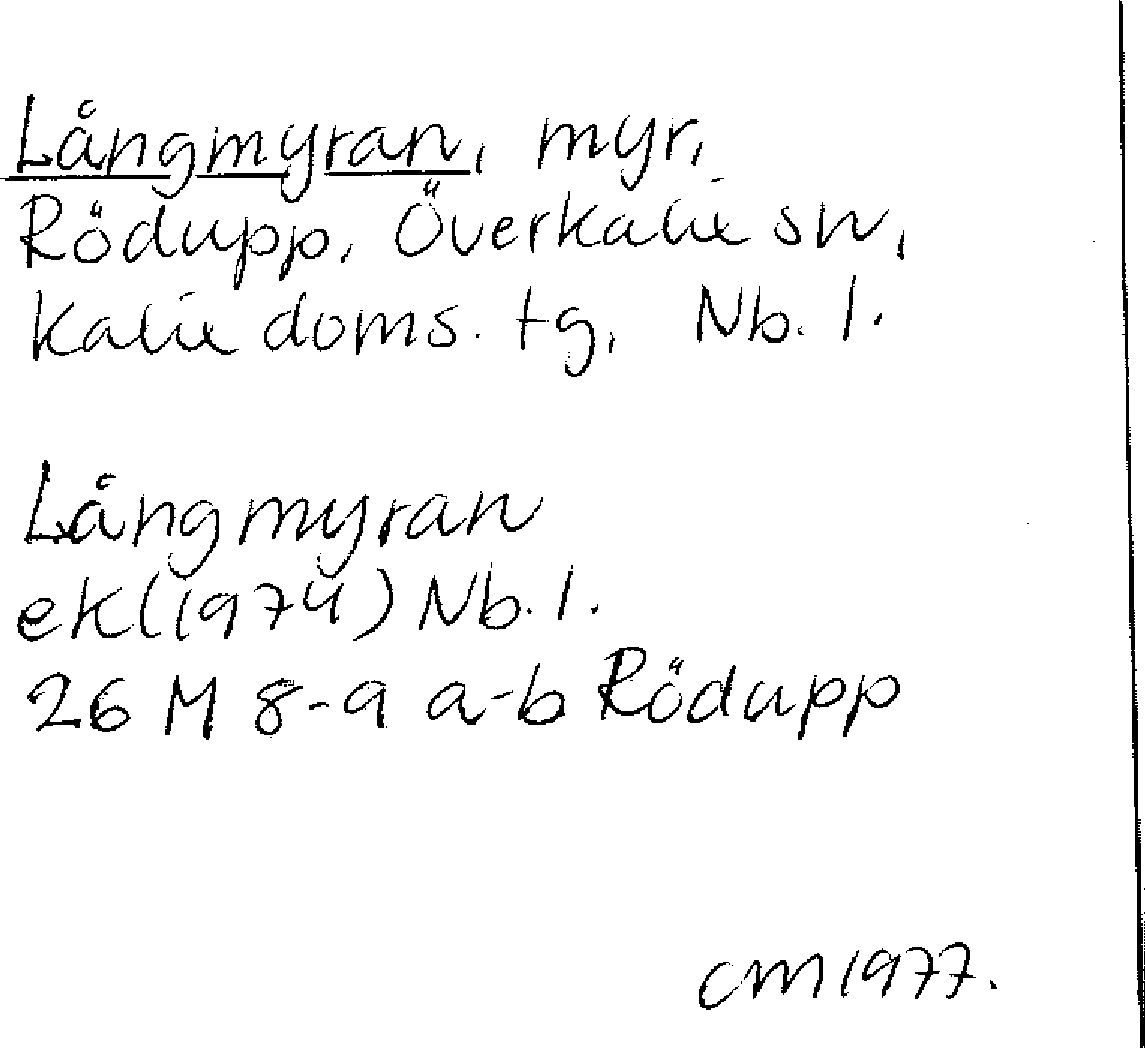 Långmyran, myr,
Rödupp, Överkalix sn,
Kalix doms. tg, Nb. l.
Långmyran
ek (1974) Nb. l.
26 M 8-9 a-b Rödupp
CM 1977.